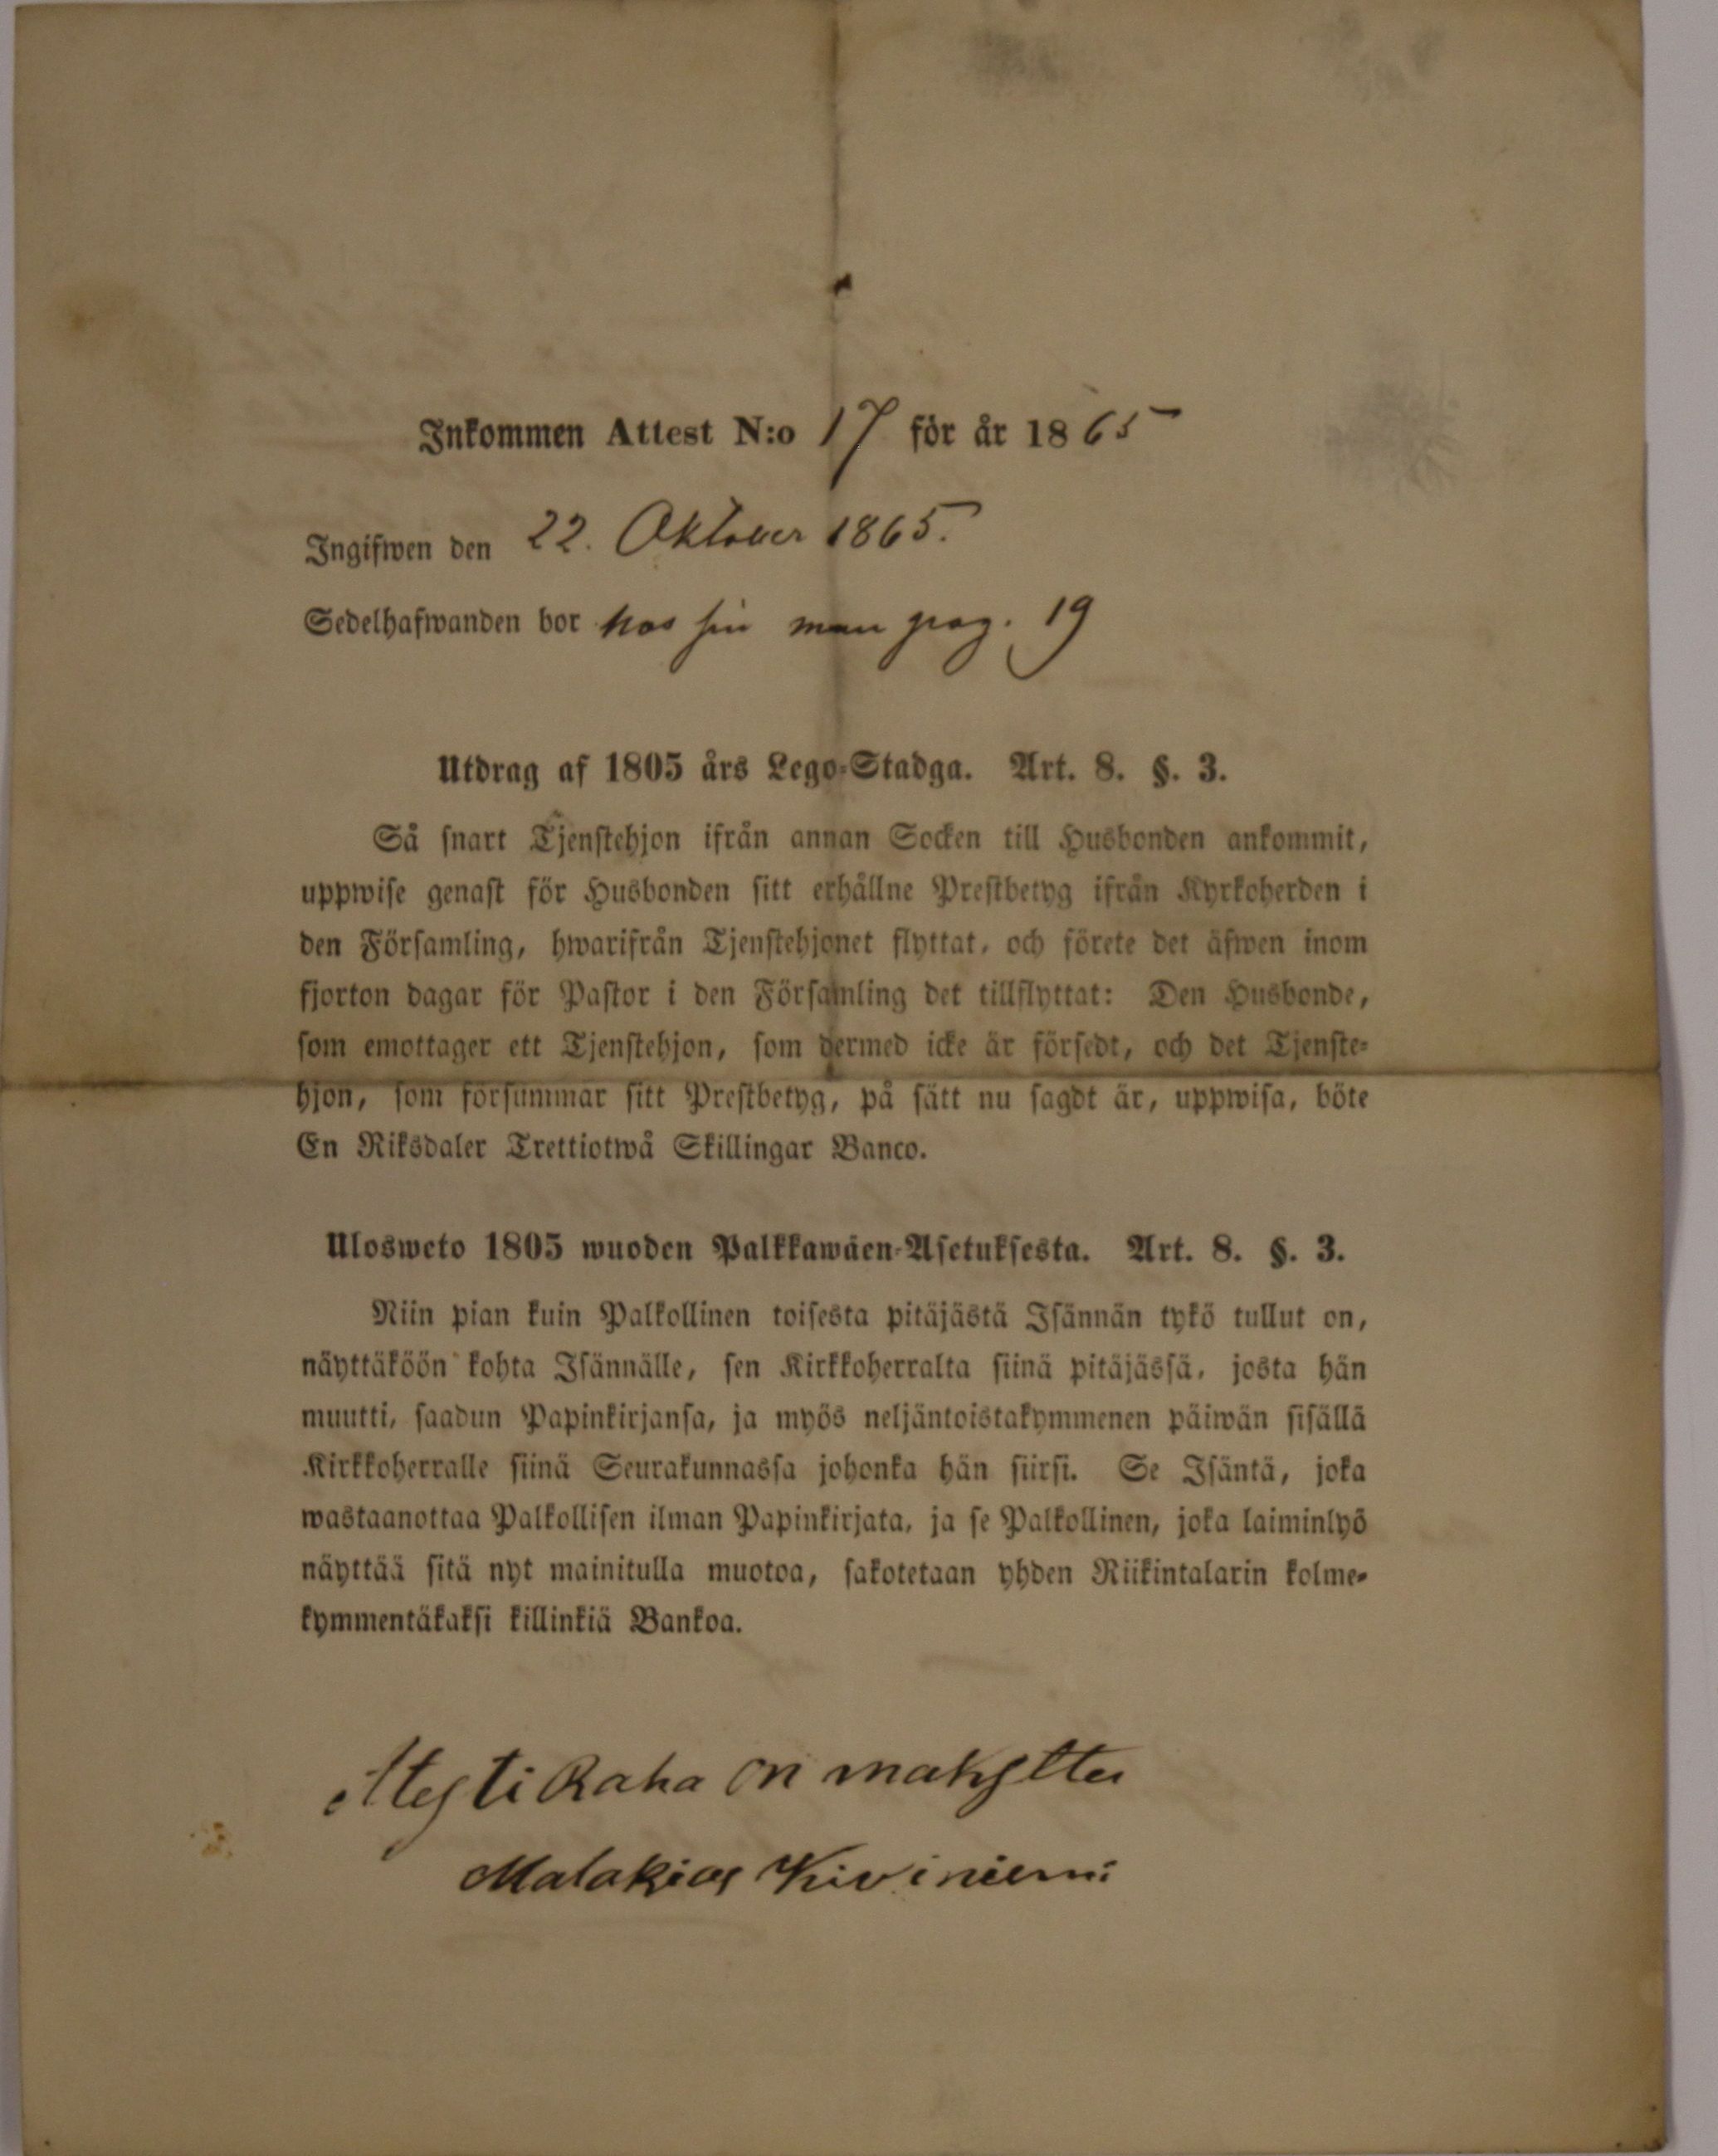 Inkommen Attest N:o 17 för år 1865
Ingifwen den 22. Oktober 1865.
Sedelhafwanden bor hos sin man pag. 19
Utdrag af 1805 års Lego-Stadga. Art. 8. §. 3.
Så snart Tjenstehjon ifrån annan Socken till Husbonden ankommit,
uppwise genast för Husbonden sitt erhållne Prestbetyg ifrån Kyrkoherden i
den Församling, hwarifrån Tjenstehjonet flyttat, och förete det äfwen inom
fjorton dagar för Pastor i den Församling det tillflyttat: Den Husbonde,
som emottager ett Tjenstehjon, som dermed icke är försedt, och det Tjenste-
hjon, som försummar sitt Prestbetyg, på sätt nu sagdt är, uppwisa, böte
En Riksdaler Trettiotwå Skillingar Banco.
Ulosweto 1805 wuoden Palkkawäen-Asetuksesta. Art. 8. §. 3.
Niin pian kuin Palkollinen toisesta pitäjästä Isännän tykö tullut on,
näyttäköön kohta Isännälle, sen Kirkkoherralta siinä pitäjässä, josta hän
muutti, saadun Papinkirjansa, ja myös neljäntoistakymmenen päiwän sisällä
Kirkkoherralle siinä Seurakunnassa johonka hän siirsi. Se Isäntä, joka
wastaanottaa Palkollisen ilman Papinkirjata, ja se Palkollinen, joka laiminlyö
näyttää sitä nyt mainitulla muotoa, sakotetaan yhden Riikintalarin kolme-
kymmentäkaksi killinkiä Bankoa.
Atesti Raha on maksettu
Malakias Kiviniemi